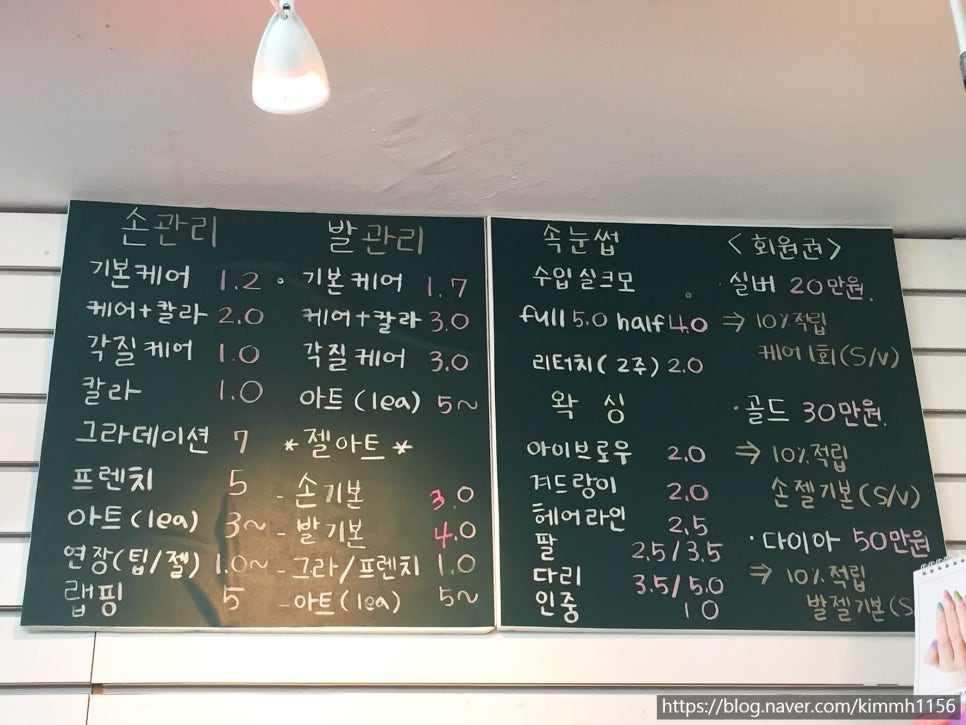 손관리
기본케어 1.2
케어+칼라 2.0
각질케어 1.0
칼라 1.0
그라데이션 7
프렌치 5
아트(1ea) 3~
연장(팁/젤) 1.0~
랩핑 5
발관리
기본케어 1.7
케어+칼라 3.0
각질케어 3.0
아트(1ea) 5~
*젤아트*
- 손기본 3.0
- 발기본 4.0
- 그라/프렌치 1.0
- 아트(1ea) 5~
속눈썹
수입실크모
full 5.0 half 4.0
리터치(2주) 2.0
왁싱
아이브로우 2.0
겨드랑이 2.0
헤어라인 2.5
팔 2.5/3.5
다리 3.5/5.0
인중 10
<회원권>
·실버 20만원.
⇒ 10%적립
케어1회(S/V)
·골드 30만원.
⇒ 10%적립
손젤기본(S/V)
·다이아 50만원
⇒ 10%적립
발젤기본(S
https://blog.naver.com/kimmh1156